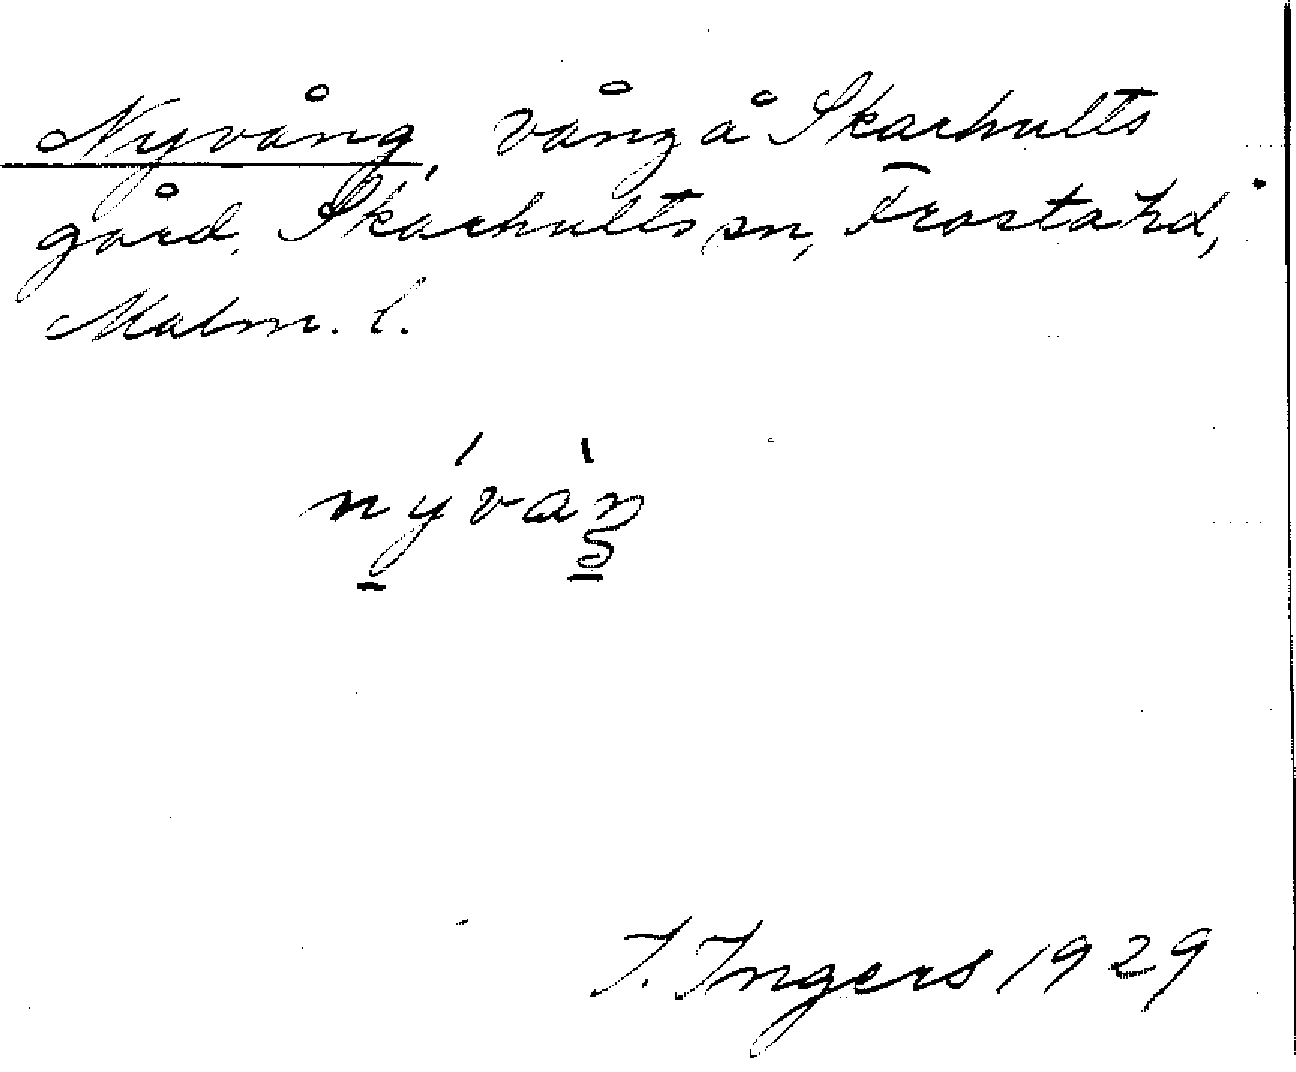 Nyvång, vång å Skarhults
gård, Skarhults sn, Frosta hd,
Malm. l.
nývàŋ
I. Ingers 1929